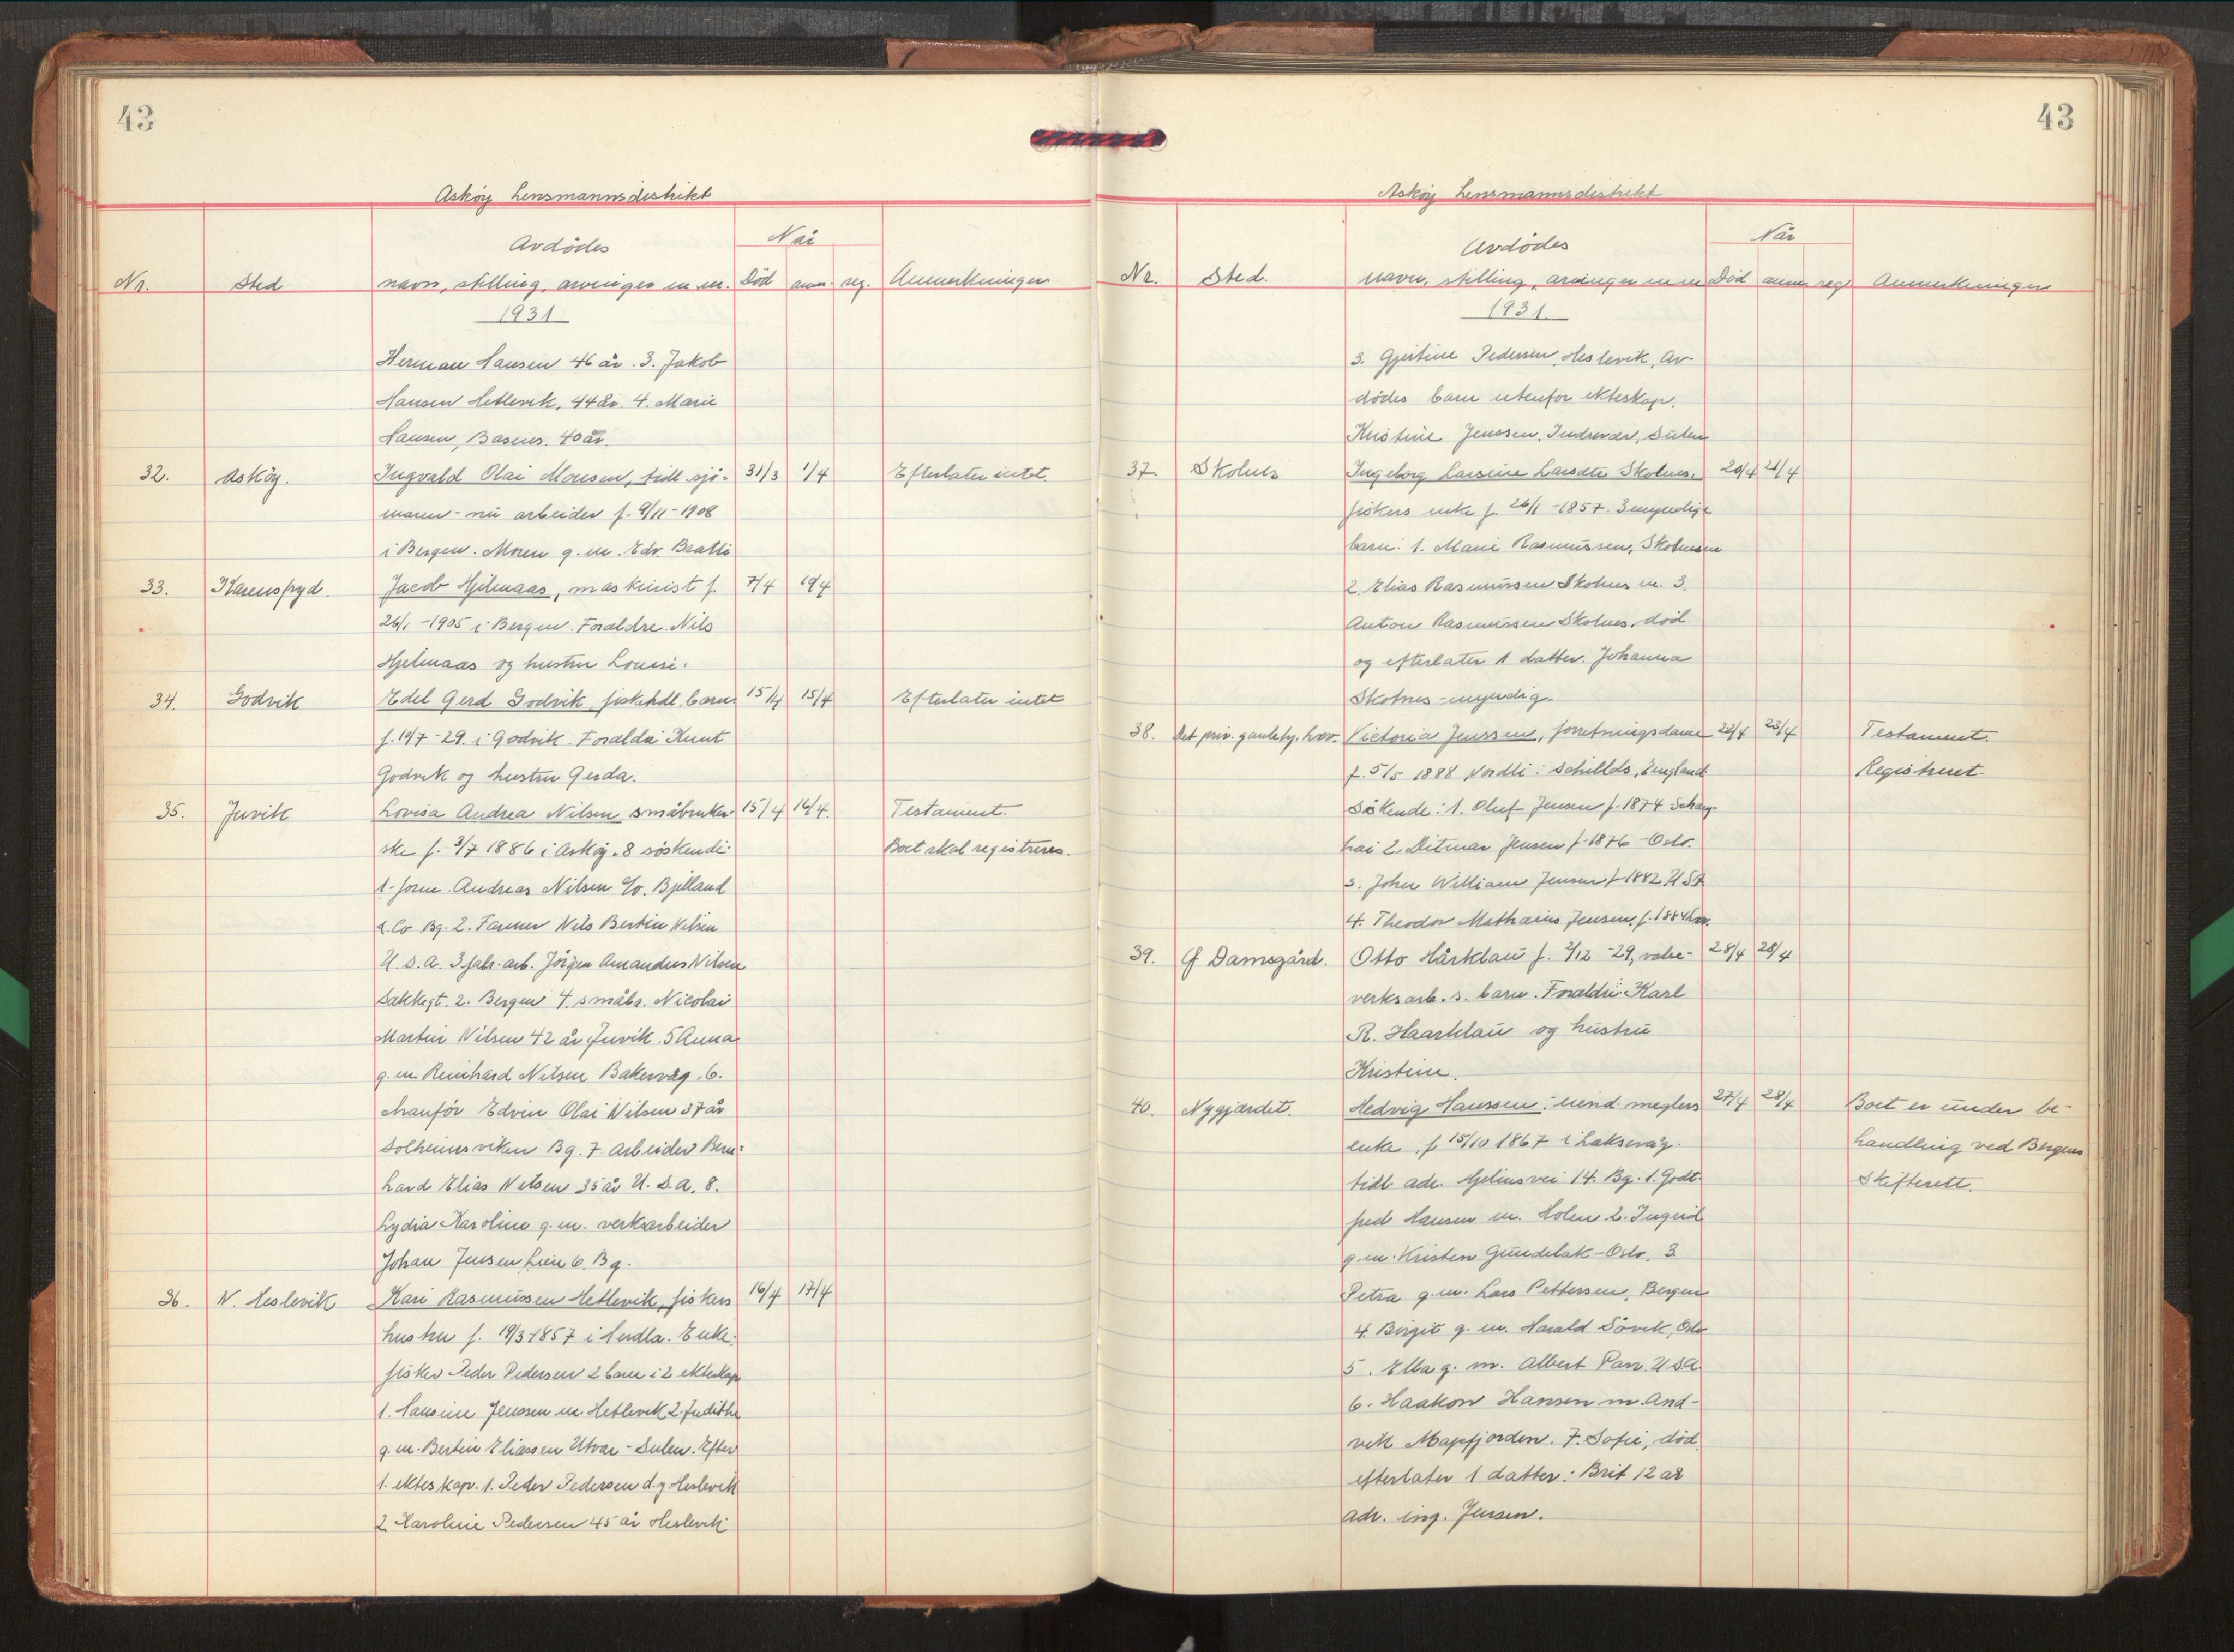 43
Askøy Lensmannsdistrikt
Avdödes
Når
Nr. Sted navn, stilling, arvinger m.m. Död anm. reg. Anmerkninger
1931
Herman Hansen 46 år. 3. Jakob
Hansen Hetlevik, 44 år. 4. Marie
Hansen, 40 år.
32. Askøy. Ingvald Olai Monsen, tidl. sjö- 31/3 1/4 Efterlater intet.
mann - nu arbeider f. 9/11-1908
i Bergen. Moren g.m. Edv. Bratli
33. Karensfryd. Jacob Hjelmaas, maskinist f. 7/4 19/4
26/1-1905 i Bergen. Foreldre. Nils
Hjelmaas og hustru Louise.
34. Godvik Edel Gerd Godvik fiskehdl. barn. 15/4 15/4 Efterlater intet
f. 19/7-29. i Godvik. Foreldre Knut
Godvik og hustru Gerda.
35. Juvik Lovisa Andrea Nilsen småbruker- 15/4 16/4. Testament.
ske f. 3/7 1886 i Askøy. 8 söskende: Boet skal registreres.
1. form. Andreas Nilsen c/o. Bjelland
& Co Bg. 2. Farmer Nils Bertin Nilsen
U.S.A. 3. fabr. arb. Jörgen Amandus Nilsen
2. Bergen 4. småbr. Nicolai
Martin Nilsen 42 år Juvik. 5 Anna
g.m. Reinhard Nilsen Bakervåg. 6.
chauför Edvin Olai Nilsen 37 år
Solheimsviken Bg. 7. Arbeider Bern-
hard Elias Nilsen 35 år U.S.A. 8.
Lydia Karoline g.m. verksarbeider
Johan Jensen Lien 6. Bg.
36. N. Heslevik Kari Rasmussen Hetlevik, fiskers 16/4 17/4
hustru f. 19/3 1857 i Herdla. Enke:
fisker Peder Pedersen 2 barn i 2 ekteskap
1. Hansine Jenssen m. Hetlevik 2 Judithe
g.m. Bertin Eliassen Utvær - Sulen. Efter
1. ekteskap. 1. Peder Pedersen d.y. Heslevik
2. Karoline Pedersen 45 år Heslevik
43
Askøy Lensmannsdistrikt
Avdödes
Når
Nr. Sted. navn, stilling, arvinger m.m. Död anm. reg. Anmerkninger
1931.
3. Gjertine Pedersen, Heslevik, Av-
dödes barn utenfor ekteskap.
Kristine Jenssen, Indrevær, Sulen
37. Skolnes Ingeborg Larsine Larsdtr Skolnes. 20/4 21/4
fiskers enke f. 26/1-1857. 3 myndige
barn: 1. Marie Rasmussen, Skolnes m
2. Elias Rasmussen Skolnes m. 3.
Anton Rasmussen Skolnes, död
og efterlater 1 datter. Johanna
Skolnes - myndig.
38. Det priv. gamlehj. Victoria Jenssen, forretningsdame 22/4 23/4 Testament.
f. 5/5 1888 Nordli: Schillds, England Registreret.
Söskende: 1. Oluf Jensen f. 1874 Schang-
hai 2. Ditmar Jensen f. 1876 - Oslo.
3. John William Jensen f. 1882 USA
4. Theodor Mathæus Jensen, f. 1884
39. Damsgård. Otto Hårklau f. 2/12-29, valse- 28/4 28/4
verksarb. s. barn. Foreldre: Karl
R. Haarklau og hustru
Kristine.
40. Nygjærdet. Hedvig Hanssen: meglers 27/4 28/4 Boet er under be-
enke, f. 15/10 1867 i Laksevåg. handling ved Bergens
tidl. adr. 14. Bg. 1. Godt- Skifterett.
fred Hansen m. Holen 2. Ingrid
g.m. Kristen - Oslo. 3.
Petra g.m. Lars Pettersen, Bergen
4. Birgit g.m. Harald Sövik, Oslo
5. Elba g.m. Albert Parr. USA
6. Haakon Hansen m. And-
vik Mapfjorden. 7. Sofie, död,
efterlater 1 datter: Brit 12 år
adr. ing. Jensen.